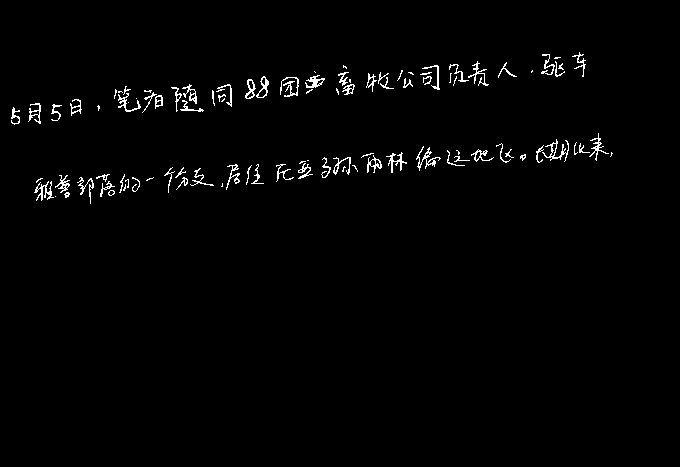 5月5日，笔者随同88团畜牧公司负责人，驱车
雅普部落的一个分支，居住在亚马孙雨林偏远地区。长期以来，